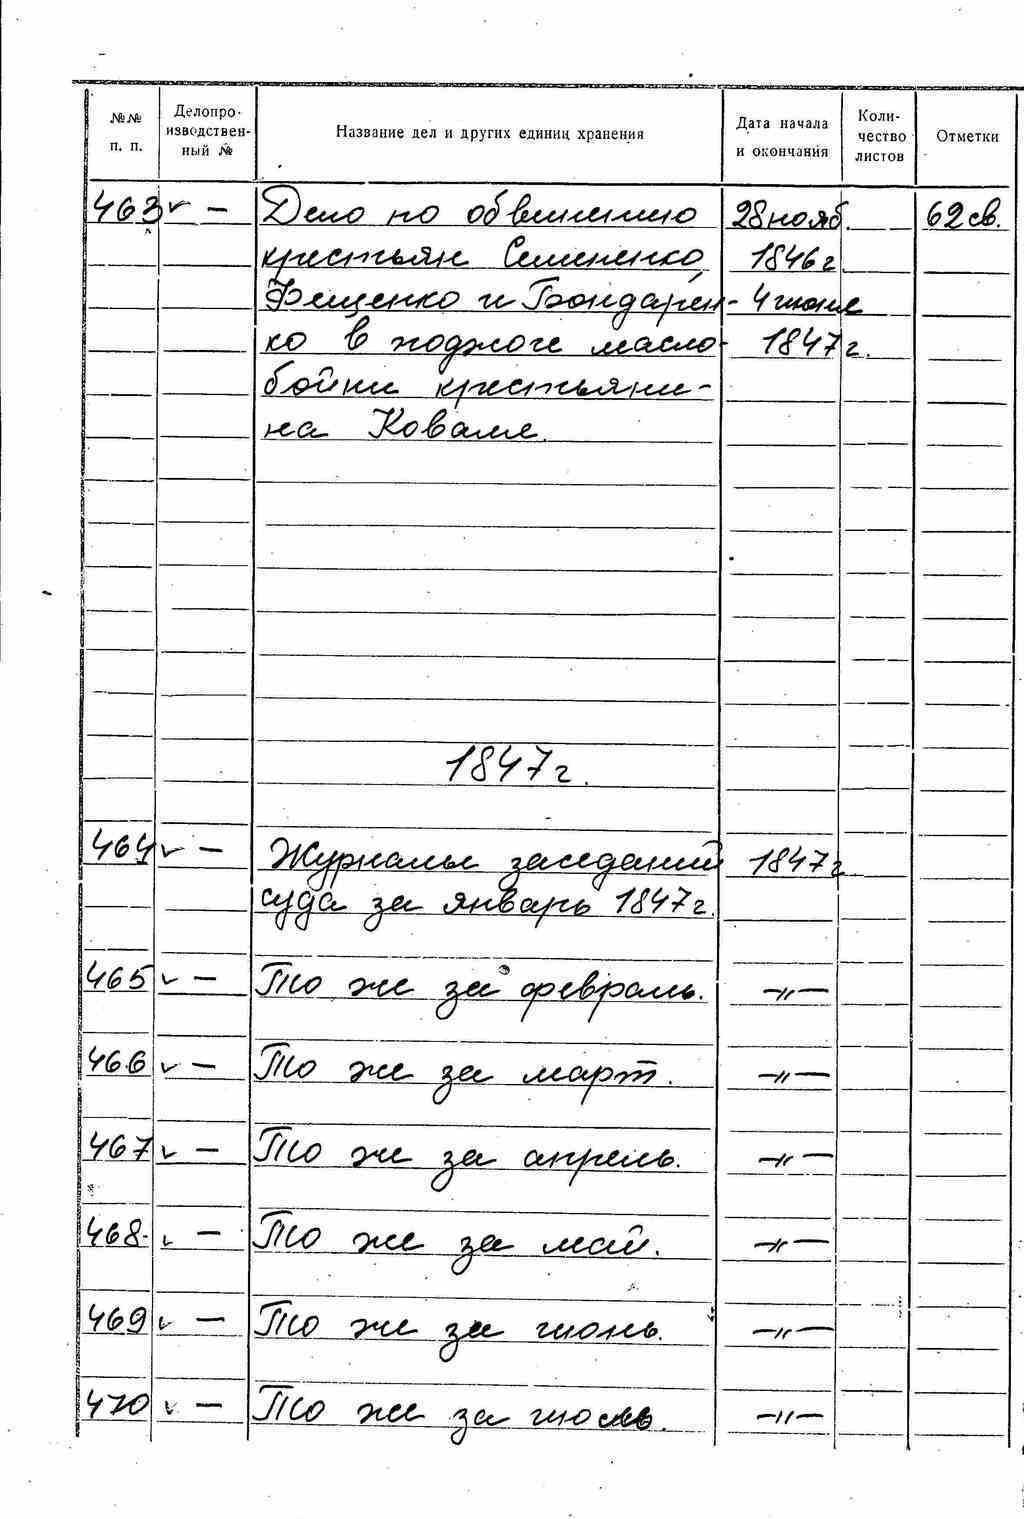 №№ п. п. Делопроизводственный № Название дел и других единиц хранения Дата начала и окончания Количество листов Отметки
463 ✓ — Дело по обвинению 28 нояб. 62 св.
крестьян Семененко, 1846 г
Фещенко и Бондарен- - 4 июня
ко в поджоге масло- 1847 г.
бойни крестьяни-
на Коваля.
1847 г.
464 ✓ — Журналы заседаний 1847 г
суда за январь 1847 г.
465 ✓ — То же за февраль. —"—
466 ✓ — То же за март. —"—
467 ✓ — То же за апрель. —"—
468. ✓ — То же за май. —"—
469 ✓ — То же за июнь. —"—
470 ✓ — То же за июль. —"—